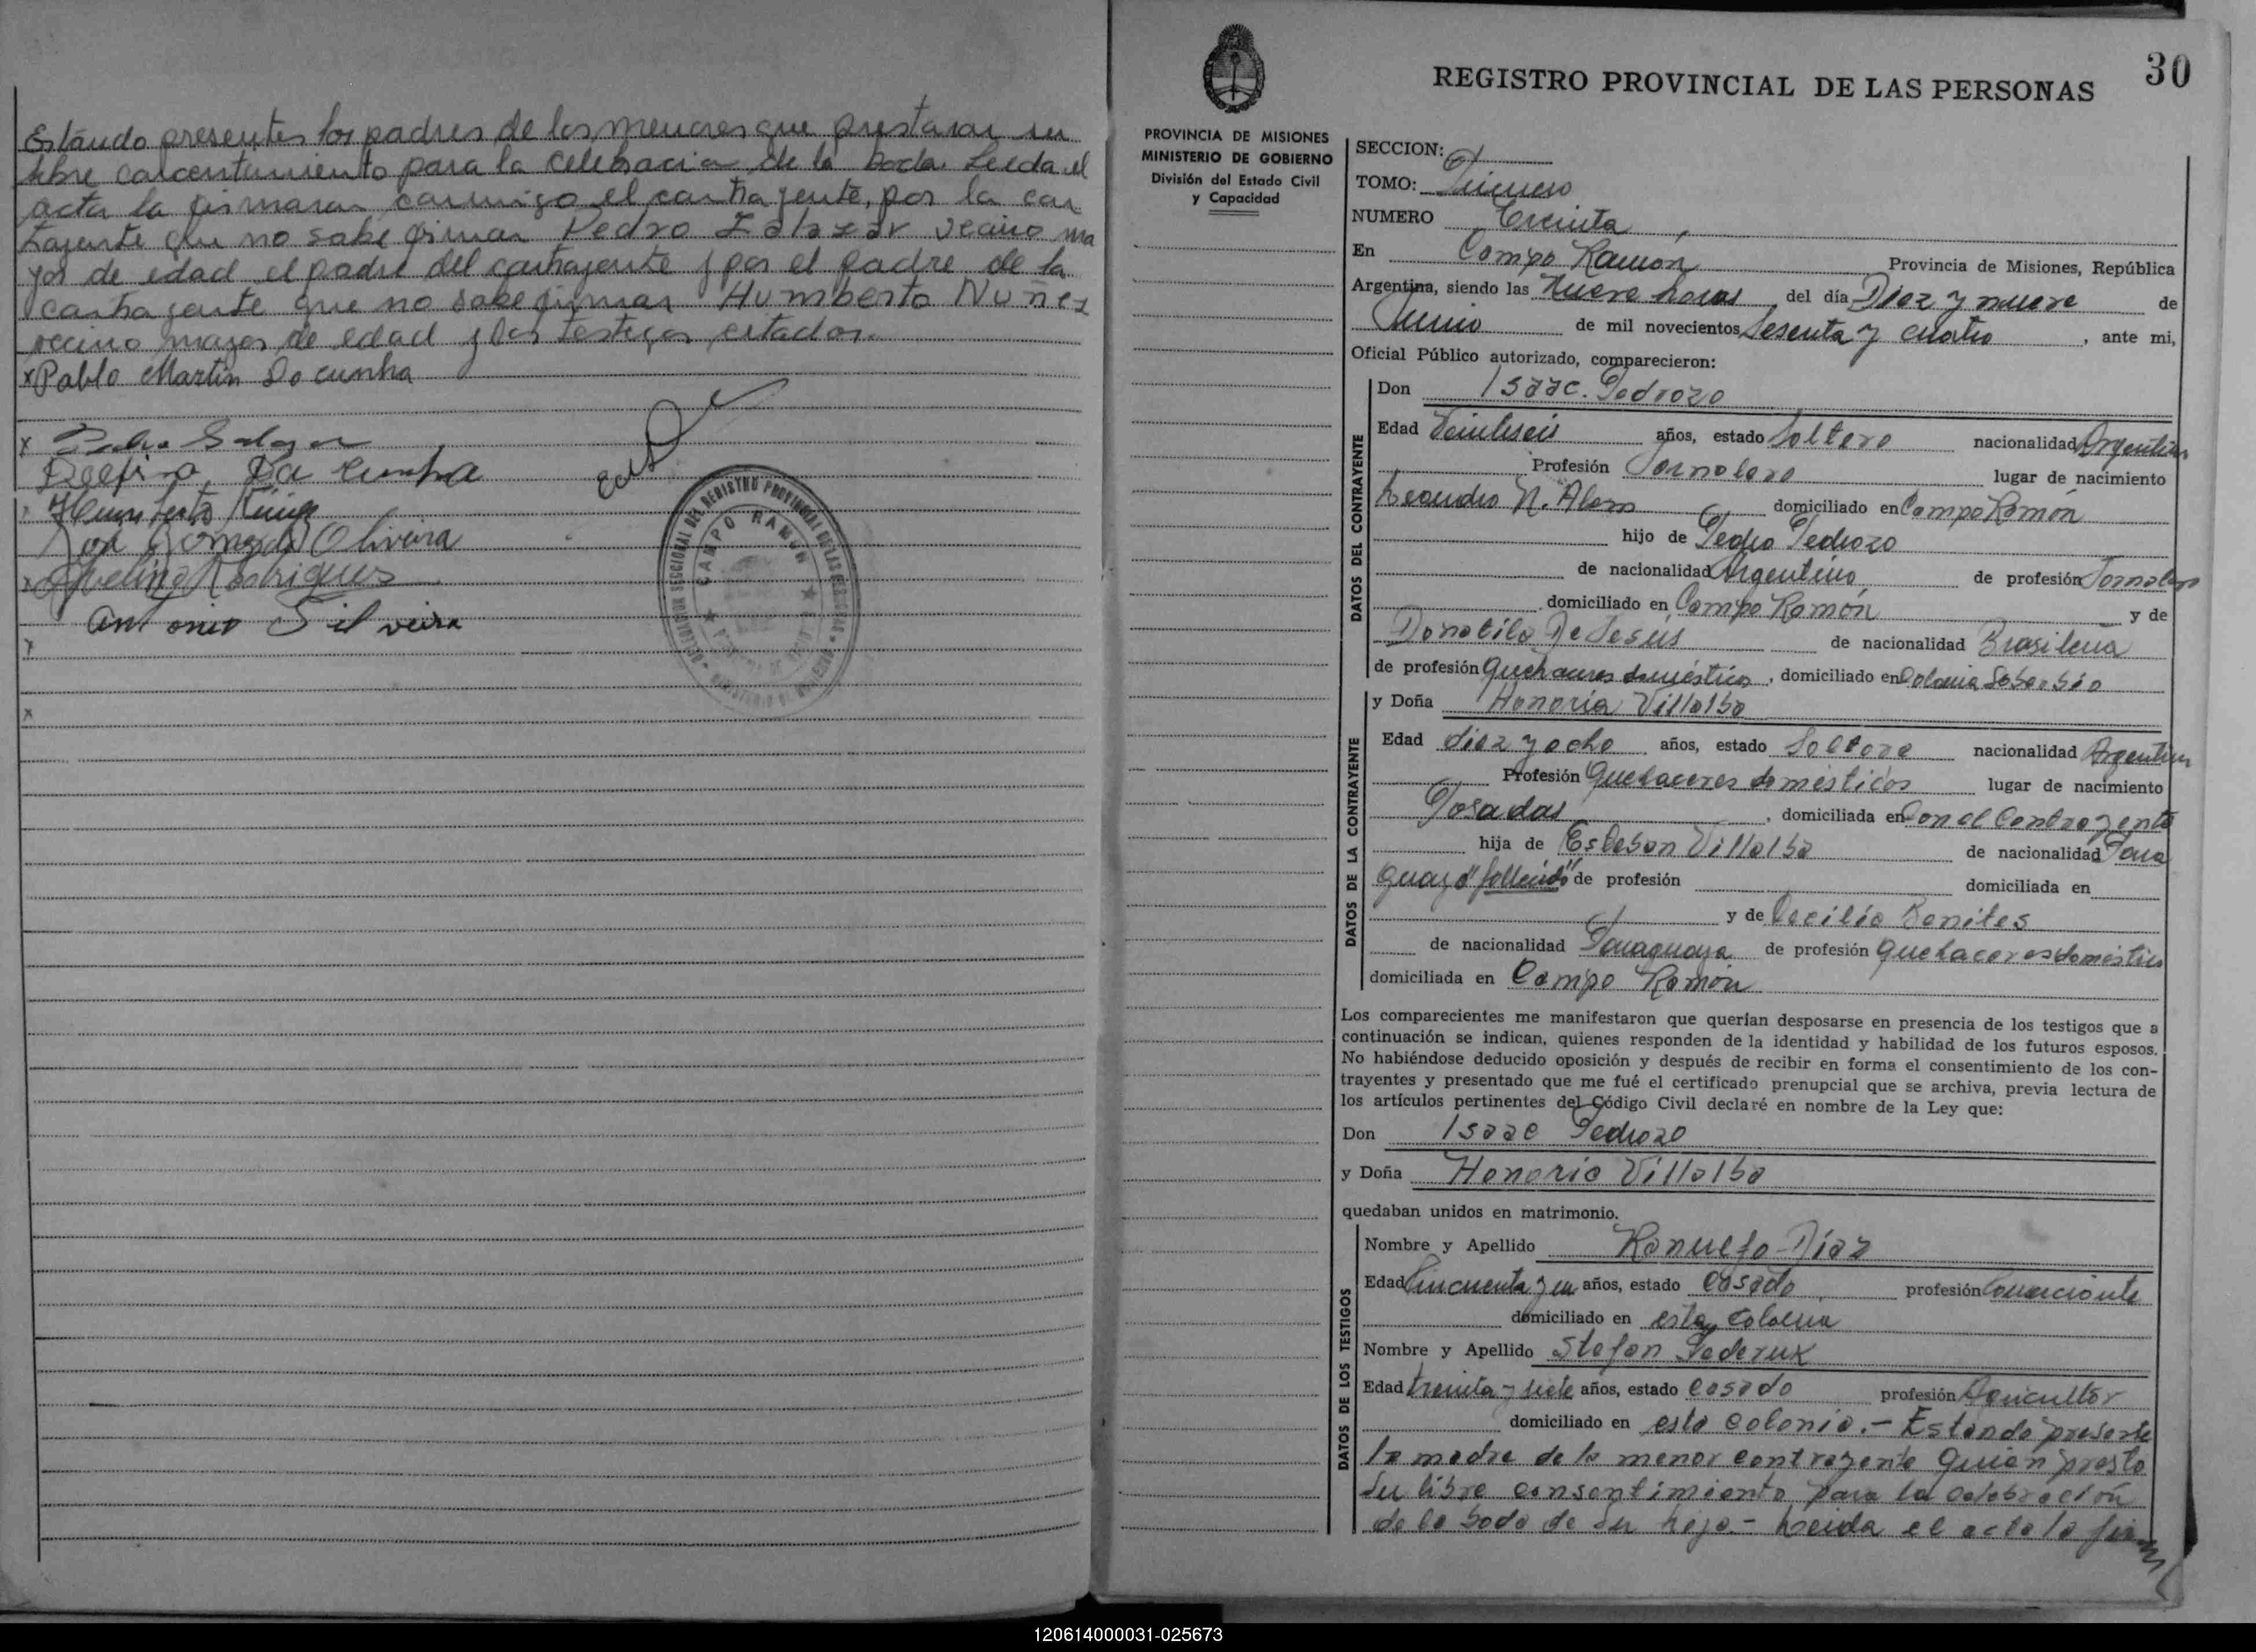 Estando presentes los padres de los menores que prestaron su
libre consentimiento para la celebracion de la boda. Leida el
acta la firmaran conmigo el contrayente, por la con
trayente que no sabe firmar Pedro Zalazar vecino ma
yor de edad el padre del contrayente y por el padre de la
contrayente que no sabe firmar Humberto Nuñez
vecino mayor de edad y los testigos citados.
x Pablo Martin Da cunha
x Pedro Salazar
Delfino Da Cunha
Humberto Nuñez
José Oliveira
Avelino Rodrigues
antonio Silveira
CAMPO RAMON
30
REGISTRO PROVINCIAL DE LAS PERSONAS
PROVINCIA DE MISIONES
MINISTERIO DE GOBIERNO
División del Estado Civil
y Capacidad
SECCION:
TOMO: Primero
NUMERO Treinta
En Campo Ramón Provincia de Misiones, República
Argentina, siendo las Nueve horas del día Diez y nueve de
Junio de mil novecientos Sesenta y cuatro, ante mi,
Oficial Público autorizado, comparecieron:
DATOS DEL CONTRAYENTE
Don Isaac. Pedrozo
Edad Veintiseis años, estado Soltero nacionalidad Argentina
Profesión Jornalero lugar de nacimiento
Leandro N. Alem domiciliado en Campo Ramón
hijo de Pedro Pedrozo
de nacionalidad Argentino de profesión Jornalero
domiciliado en Campo Ramón y de
Donatila De Jesús de nacionalidad Brasileña
de profesión Quehaceres domésticos, domiciliado en Colonia
DATOS DE LA CONTRAYENTE
y Doña Honoria Villalba
Edad diez y ocho años, estado Soltera nacionalidad Argentina
Profesión Quehaceres domésticos lugar de nacimiento
Posadas, domiciliada en Con el Contrayente
hija de Esteban Villalba de nacionalidad Para
guayo "fallecido" de profesión domiciliada en
y de Cecilia Benites
de nacionalidad Paraguaya de profesión Quehaceres domésticos
domiciliada en Campo Ramón
Los comparecientes me manifestaron que querían desposarse en presencia de los testigos que a
continuación se indican, quienes responden de la identidad y habilidad de los futuros esposos.
No habiéndose deducido oposición y después de recibir en forma el consentimiento de los con-
trayentes y presentado que me fué el certificado prenupcial que se archiva, previa lectura de
los artículos pertinentes del Código Civil declaré en nombre de la Ley que:
Don Isaac Pedrozo
y Doña Honoria Villalba
quedaban unidos en matrimonio.
DATOS DE LOS TESTIGOS
Nombre y Apellido Ranulfo Díaz
Edad Cincuenta y un años, estado casado profesión Comerciante
domiciliado en esta colonia
Nombre y Apellido Stefan
Edad treinta y siete años, estado casado profesión Agricultor
domiciliado en esta colonia.- Estando presente
la madre de la menor contrayente quien presto
su libre consentimiento para la celebración
de la boda de su hija - Leida el acta la firman
120614000031-025673